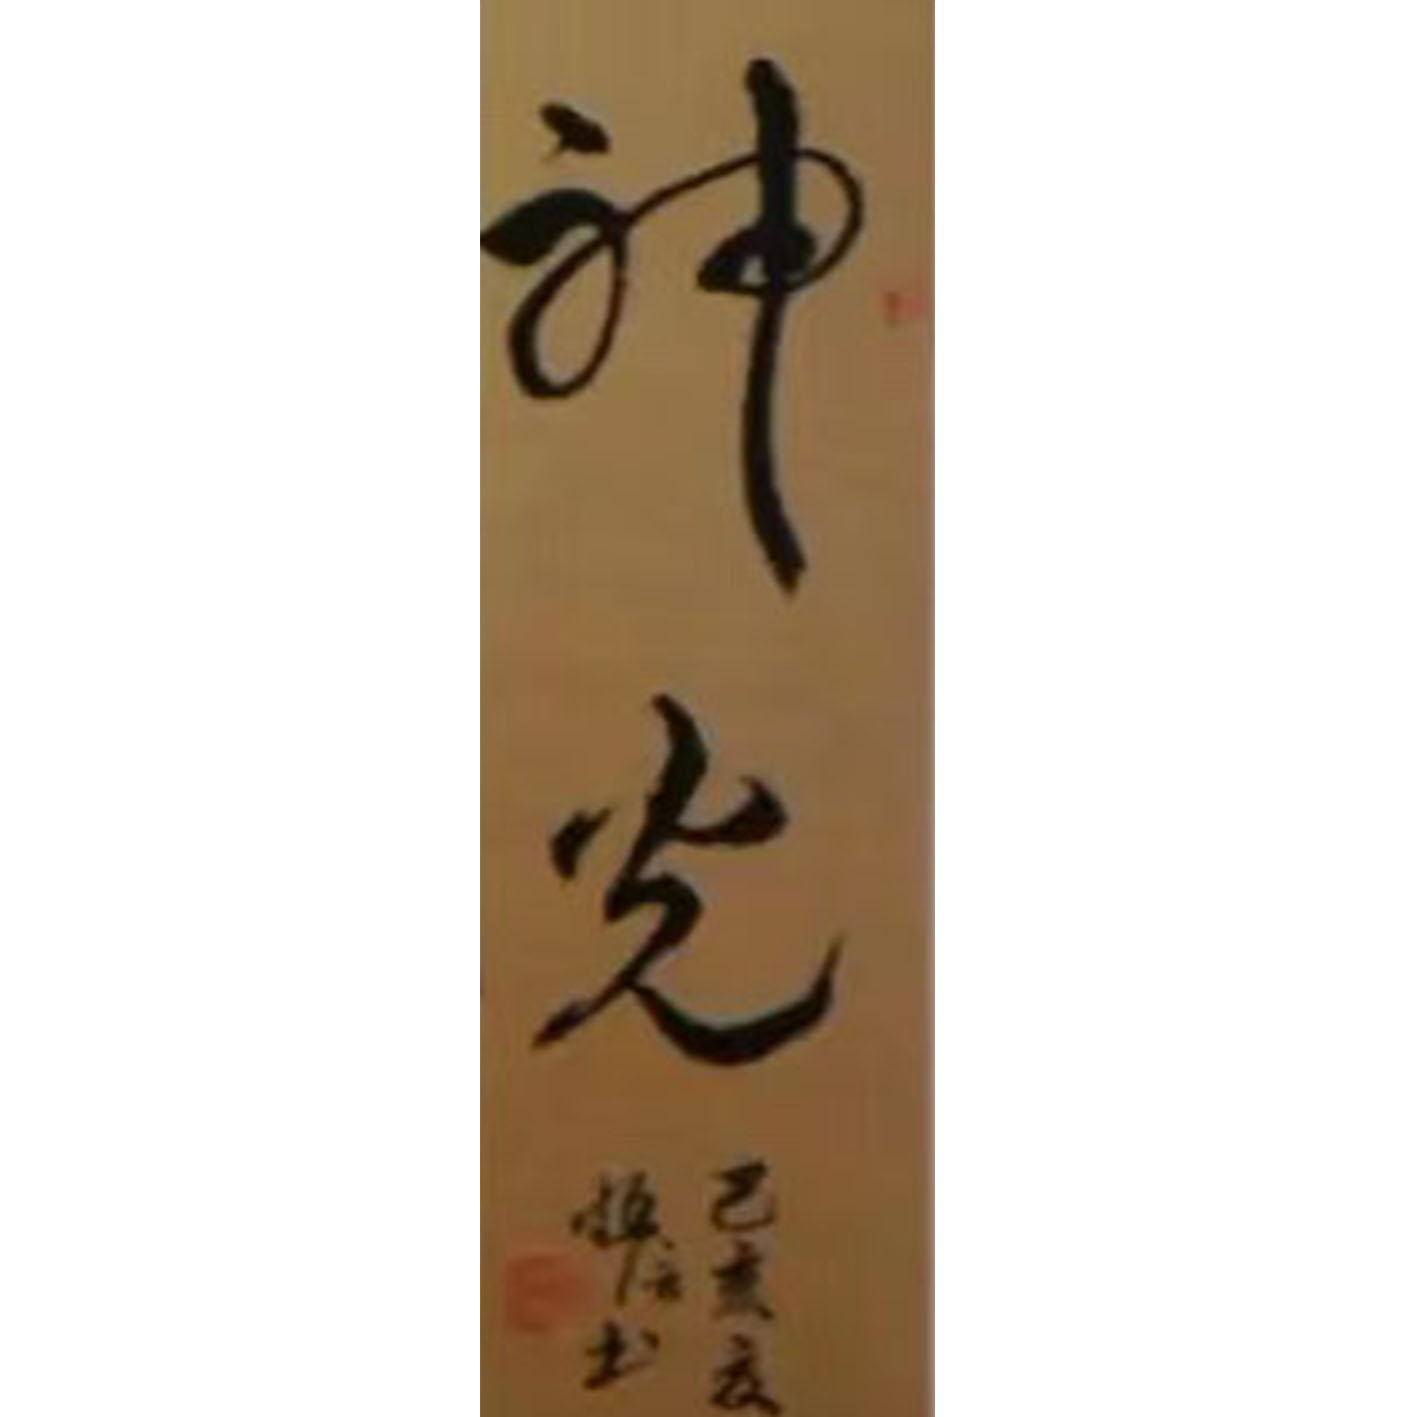 神光
己亥夏
书